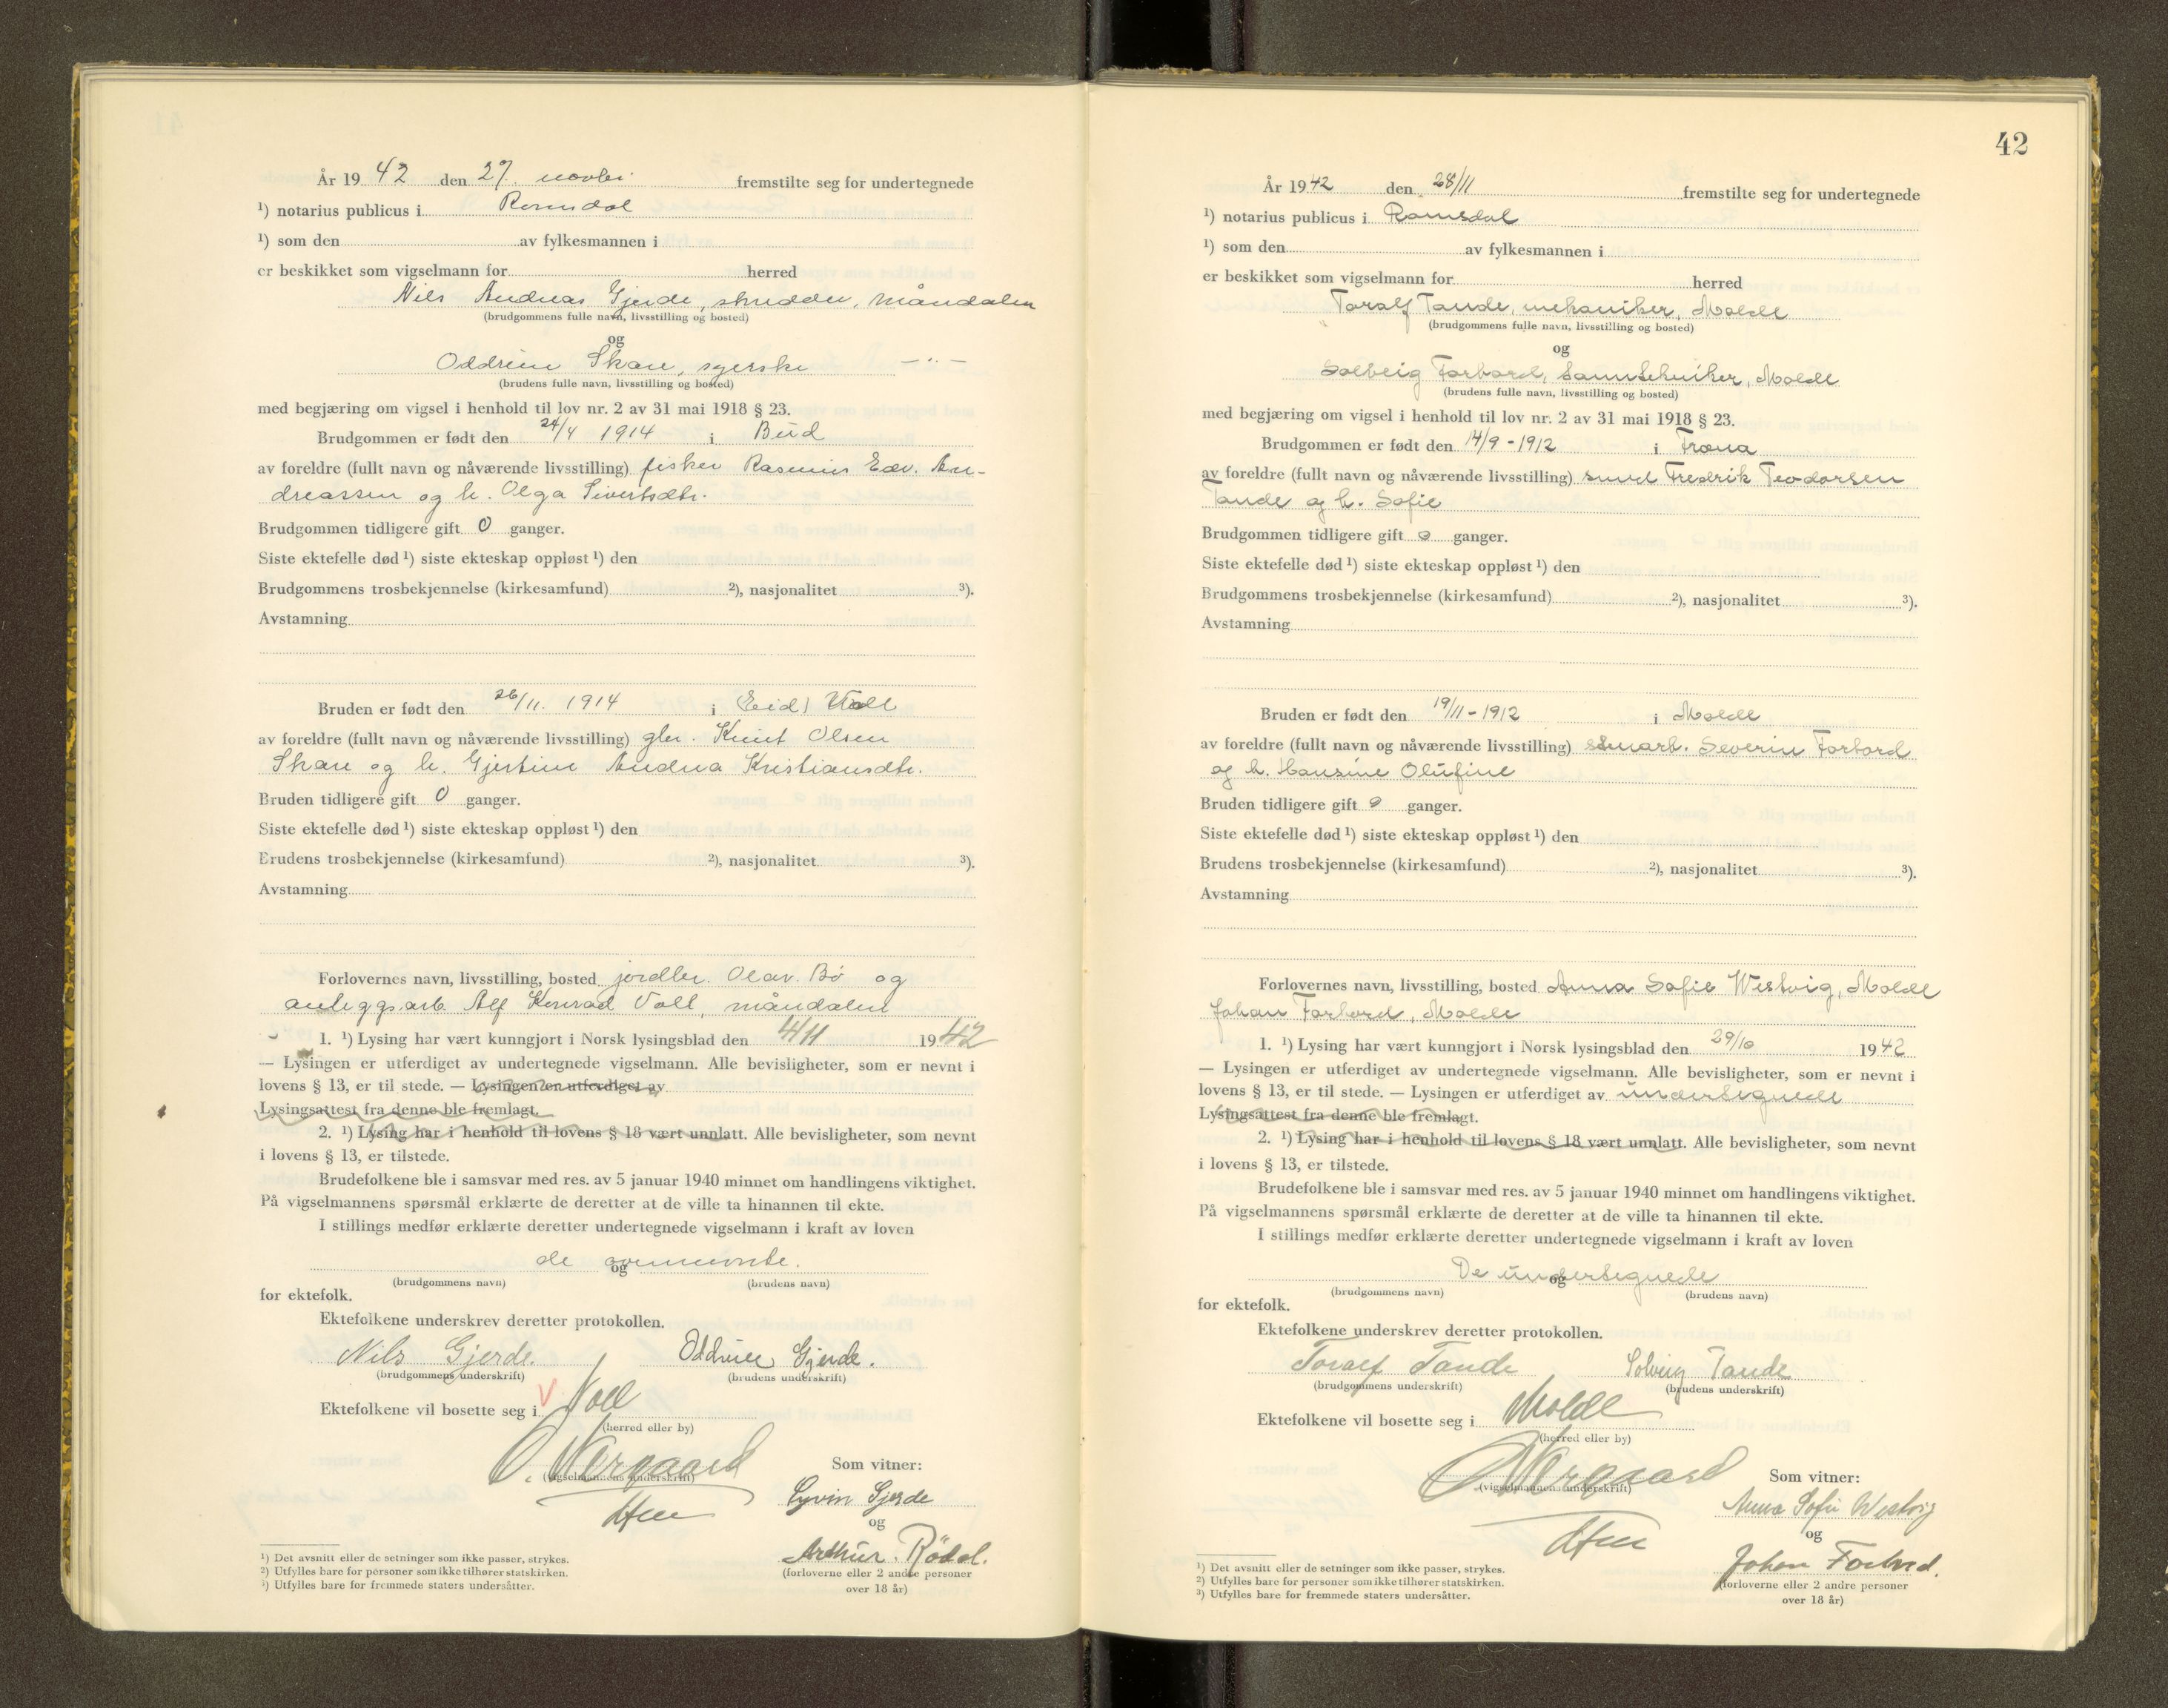 År 1942 den 27. novbr. fremstilte seg for undertegnede
¹) notarius publicus i Romsdal
¹) som den av fylkesmannen i
er beskikket som vigselmann for herred
Nils Andreas Gjerde, skredder, Måndalen
(brudgommens fulle navn, livsstilling og bosted)
og
Oddrun Skare, syerske —"—
(brudens fulle navn, livsstilling og bosted)
med begjæring om vigsel i henhold til lov nr. 2 av 31 mai 1918 § 23.
Brudgommen er født den 24/4 1914 i Bud
av foreldre (fullt navn og nåværende livsstilling) fisker Rasmus Edv. An-
dreassen og h. Olga Sivertsdtr.
Brudgommen tidligere gift 0 ganger.
Siste ektefelle død ¹) siste ekteskap oppløst ¹) den
Brudgommens trosbekjennelse (kirkesamfund) ²), nasjonalitet ³).
Avstamning
Bruden er født den 26/11. 1914 i (Eid) Voll
av foreldre (fullt navn og nåværende livsstilling) gbr. Knut Olsen
Skare og h. Gjertine Andrea Kristiansdtr.
Bruden tidligere gift 0 ganger.
Siste ektefelle død ¹) siste ekteskap oppløst ¹) den
Brudens trosbekjennelse (kirkesamfund) ²), nasjonalitet ³).
Avstamning
Forlovernes navn, livsstilling, bosted jordbr. Olav Bö og
anleggsarb. Alf Konrad Voll, måndalen
1. ¹) Lysing har vært kunngjort i Norsk lysingsblad den 4/11 1942
— Lysingen er utferdiget av undertegnede vigselmann. Alle bevisligheter, som er nevnt i
lovens § 13, er til stede. — Lysingen er utferdiget av
Lysingsattest fra denne ble fremlagt.
2. ¹) Lysing har i henhold til lovens § 18 vært unnlatt. Alle bevisligheter, som nevnt
i lovens § 13, er tilstede.
Brudefolkene ble i samsvar med res. av 5 januar 1940 minnet om handlingens viktighet.
På vigselmannens spørsmål erklærte de deretter at de ville ta hinannen til ekte.
I stillings medfør erklærte deretter undertegnede vigselmann i kraft av loven
de ovennevnte.
og
(brudgommens navn) (brudens navn)
for ektefolk.
Ektefolkene underskrev deretter protokollen.
Nils Gjerde. Oddrun Gjerde.
(brudgommens underskrift) (brudens underskrift)
Ektefolkene vil bosette seg i V Voll
(herred eller by)
O. Nergaard
(vigselmannens underskrift)
Som vitner:
Syvin Gjerde
og
Arthur. Rödal.
(forloverne eller 2 andre personer
over 18 år)
¹) Det avsnitt eller de setninger som ikke passer, strykes.
²) Utfylles bare for personer som ikke tilhører statskirken.
³) Utfylles bare for fremmede staters undersåtter.
42
År 1942 den 28/11 fremstilte seg for undertegnede
¹) notarius publicus i Romsdal
¹) som den av fylkesmannen i
er beskikket som vigselmann for herred
Toralf Tande, mekaniker, Molde
(brudgommens fulle navn, livsstilling og bosted)
og
Solveig Forbord, tanntekniker, Molde
(brudens fulle navn, livsstilling og bosted)
med begjæring om vigsel i henhold til lov nr. 2 av 31 mai 1918 § 23.
Brudgommen er født den 14/9 - 1912 i Træna
av foreldre (fullt navn og nåværende livsstilling) smed Fredrik Teodorsen
Tande og h. Sofie
Brudgommen tidligere gift 0 ganger.
Siste ektefelle død ¹) siste ekteskap oppløst ¹) den
Brudgommens trosbekjennelse (kirkesamfund) ²), nasjonalitet ³).
Avstamning
Bruden er født den 19/11 - 1912 i Molde
av foreldre (fullt navn og nåværende livsstilling) Severin Forbord
og h. Hansine Olufine
Bruden tidligere gift 0 ganger.
Siste ektefelle død ¹) siste ekteskap oppløst ¹) den
Brudens trosbekjennelse (kirkesamfund) ²), nasjonalitet ³).
Avstamning
Forlovernes navn, livsstilling, bosted Anna Sofie Westvig, Molde
Johan Forbord, Molde
1. ¹) Lysing har vært kunngjort i Norsk lysingsblad den 29/10 1942
— Lysingen er utferdiget av undertegnede vigselmann. Alle bevisligheter, som er nevnt i
lovens § 13, er til stede. — Lysingen er utferdiget av undertegnede
Lysingsattest fra denne ble fremlagt.
2. ¹) Lysing har i henhold til lovens § 18 vært unnlatt. Alle bevisligheter, som nevnt
i lovens § 13, er tilstede.
Brudefolkene ble i samsvar med res. av 5 januar 1940 minnet om handlingens viktighet.
På vigselmannens spørsmål erklærte de deretter at de ville ta hinannen til ekte.
I stillings medfør erklærte deretter undertegnede vigselmann i kraft av loven
De undertegnede
og
(brudgommens navn) (brudens navn)
for ektefolk.
Ektefolkene underskrev deretter protokollen.
Toralf Tande Solveig Tande
(brudgommens underskrift) (brudens underskrift)
Ektefolkene vil bosette seg i Molde
(herred eller by)
O Nergaard
(vigselmannens underskrift)
Som vitner:
Anna Sofie Westvig
og
Johan Forbord.
(forloverne eller 2 andre personer
over 18 år)
¹) Det avsnitt eller de setninger som ikke passer, strykes.
²) Utfylles bare for personer som ikke tilhører statskirken.
³) Utfylles bare for fremmede staters undersåtter.